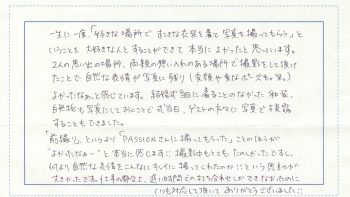 一生に一度、「好きな場所で すてきな衣装を着て 写真を撮ってもらう」と
いうことを 大好きな人と することができて 本当に よかったと 思っています。
2人の思い出の場所、両親の想い入れのある場所で 撮影をして頂け
たことで 自然な表情が写真に残り（変顔や変なポーズも 笑）
よかったなぁ、と感じています。結婚式当日に着ることのなかった 和装、
自然‥も写真にしておくことで 式当日、ゲストの方々に 写真で 披露
することもできました。
「前撮り」というより「PASSIONさんに 撮ってもらった」ことのほうが
"よかったなぁー"と 本当に感じます!! 撮影中もとても たのしかったですし、
何より 自然な表情をこんなに キレイに 撮ってくれたのか!! という 驚きのが
大きかったです。仕事の都合上、遅い時間との打ち合わせしか できなかったのに
いつも対応して頂いて ありがとうございました!!